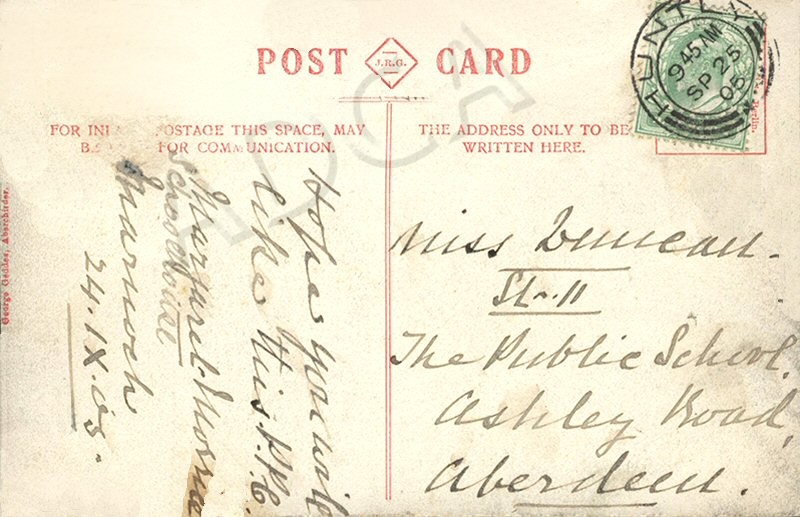 POST CARD
J.R.G.
FOR INLAND POSTAGE THIS SPACE, MAY
BE FOR COMMUNICATION.
THE ADDRESS ONLY TO BE
WRITTEN HERE.
HUNTLY
9 45 AM
SP 25
05
Berlin.
Hope you will
like this P.P.C
Margaret Morrice
Schoolhouse
Marnoch
24.IX.05.
Miss Duncan.
St. II
The Public School,
Ashley Road,
Aberdeen.
George Geddes, Aberchirder.
ADCA